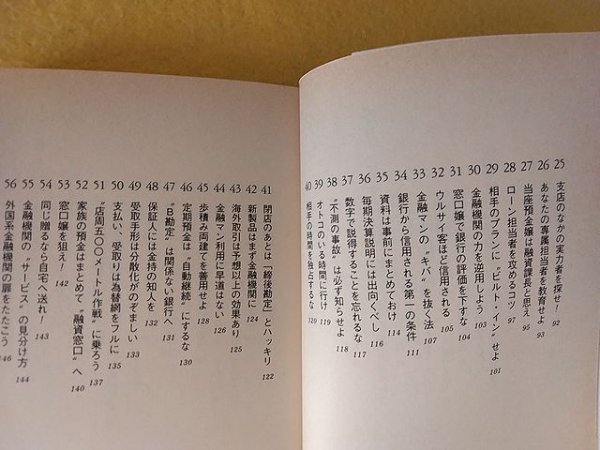 25 支店のなかの実力者を探せ! 92
26 あなたの専属担当者を教育せよ 93
27 当座預金嬢は融資課長と思え 95
28 ローン担当者を攻めるコツ 97
29 相手のプランに〝ビルト・イン〟せよ 101
30 金融機関の力を逆用しよう 103
31 窓口嬢で銀行の評価を下すな 104
32 ウルサイ客ほど信用される 105
33 金融マンの〝キバ〟を抜く法 107
34 銀行から信用される第一の条件 111
35 資料は事前にまとめておけ 114
36 毎期決算説明には出向くべし 116
37 数字で説得することを忘れるな 117
38 〝不測の事故〟は必ず知らせよ 118
39 オトコのいる時間に行け 119
40 相手の時間を独占するな
41 閉店のあとは「締後勘定」とハッキリ 122
42 新製品はまず金融機関に 124
43 海外取引は予想以上の効果あり
44 金融マン利用に早道はない
45 歩積み両建てを善用せよ 128
46 定期預金は〝自動継続〟にするな 130
47 〝B勘定〟は関係ない銀行へ 131
48 保証人には金持の知人を 132
49 受取手形は分散化がのぞましい 133
50 支払い、受取りは為替網をフルに 135
51 「店周五〇〇メートル作戦」に乗ろう 137
52 家族の預金はまとめて〝融資窓口〟へ 140
53 窓口嬢を狙え! 142
54 同じ贈るなら自宅へ送れ! 143
55 金融機関の〝サービス〟の見分け方 144
56 外国系金融機関の扉をたたこう 146